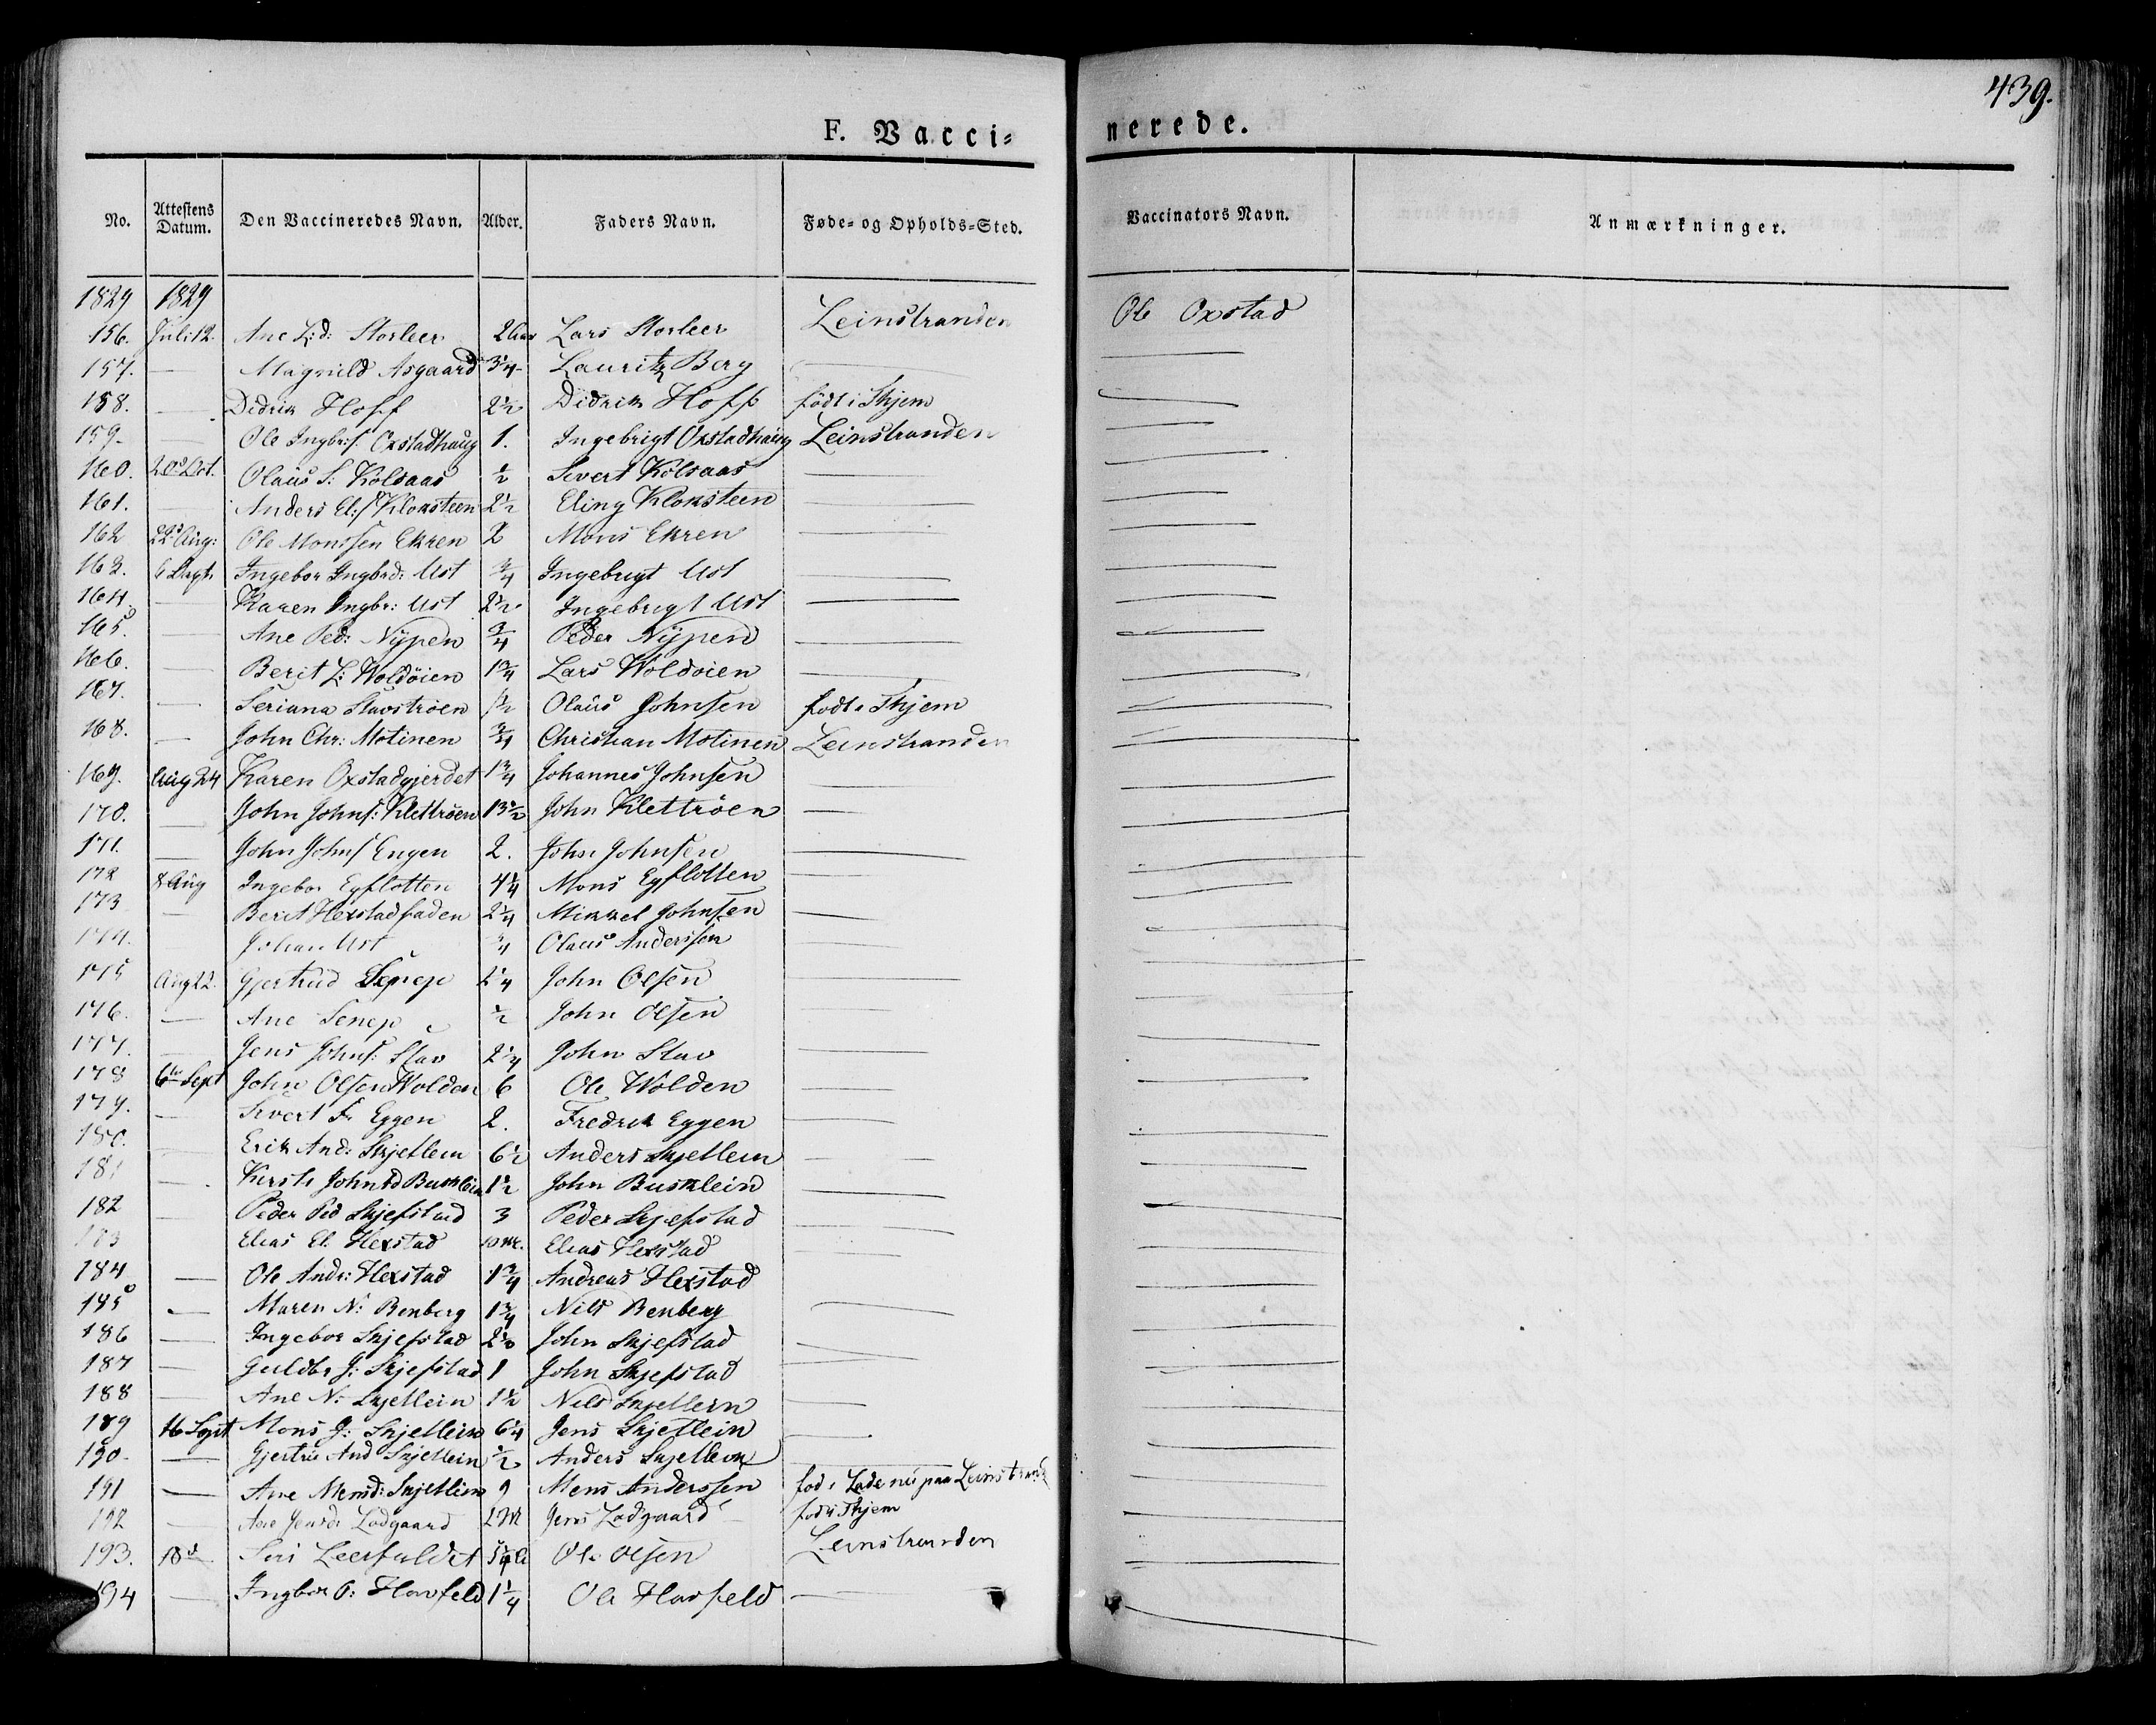 439.
F. Vacci=
nerede.
No. Attestens Datum. Den Vaccineredes Navn. Alder. Faders Navn. Føde= og Opholds=Sted. Vaccinators Navn. Anmærkninger.
1829 1829
156. Juli 12. Ane L:d: Storleer 2 Aar Lars Storleer Leinstranden Ole Oxstad
157. — Magnild Asgaard 3 1/4 Lauritz Berg —
158. — Didrik Hoff 2 1/2 Didrik Hoff födt i Thjem —
159. — Ole Ingbr:s. Oxstadhaug 1. Ingebrigt Oxstadhaug Leinstranden —
160. Olaus S: Kolsaas 1/2 Sivert Kolsaas — —
161. Anders El:s Kloksteen 2 1/2 Eling Kloksteen — —
162 22d Aug: Ole Monssen Ekren 2 Mons Ekren — —
163. 6 Sept. Ingebor Ingbrd: Ust 3/4 Ingebrigt Ust — —
164. — Karen Ingbr: Ust 2 1/2 Ingebrigt Ust — —
165. — Ane Ped: Nÿpen 3/4 Peder Nÿpen — —
166. — Berit L: Woldöien 1 3/4 Lars Woldöien — —
167. — Seriana Slavströen 1/2 Olaus Johnsen födt i Thjem —
168. — John Chr: Motinen 3/4 Christian Motinen Leinstranden —
169. Aug 24 Karen Oxstadgjerdet 1 3/4 Johannes Johnsen — —
170. — John Johns: Klettröen 13 1/2 John Klettröen — —
171. — John Johns Engen 2. John Johnsen — —
172 8 Aug Ingebor Egflotten 4 1/4 Mons Egflotten —
173 — Berit Hexstadfaden 2 1/4 Mikkel Johnsen — —
174. Johan Ust 3/4 Olaus Anderssen — —
175 Aug 22. Gjertrud Senep 2 1/4 John Olsen — —
176. — Ane Senep 1/2 John Olsen — —
177. — Jens Johns: Stav 2 1/4 John Stav — —
178 6te Sept John Olsen Wolden 6 Ole Wolden — —
179. — Sivert Fr Eggen 2. Fredrik Eggen —
180. — Erik And: Skjetlein 6 1/2 Anders Skjetlein — —
181 — Kirsti Johnsd Busklein 1 1/2 John Busklein — —
182 — Peder Ped Skjefstad 3 Peder Skjefstad — —
183 Elias El. Hexstad Elias Hexstad — —
184 — Ole Andr: Hexstad 1 3/4 Andreas Hexstad —
185 — Maren N: Benberg 1 3/4 Nils Benberg — —
186 — Ingebor Skjefstad 2 1/2 John Skjefstad — —
187 — Guldbr J: Skjefstad 1 John Skjefstad —
188 — Ane N: Skjetlein 1 1/2 Nils Skjetlein — —
189 16 Sept Mons J: Skjetlein 6 1/4 Jens Skjetlein — —
190. — Gjertru And Skjetlein 1/2 Anders Skjetlein — —
191 — Ane Monsd: Skjetlein 9 Mons Anderssen fod i Lade nu paa Leinstrand —
192 — Ane Jensd: Lodgaard 2 M Jens Lodgaard fod i Thjem —
193. 18d Siri Leerfaldet Ole Olsen Leinstranden —
194 — Ingbor O: Havfeld 1 1/4 Ole Havfeld — —